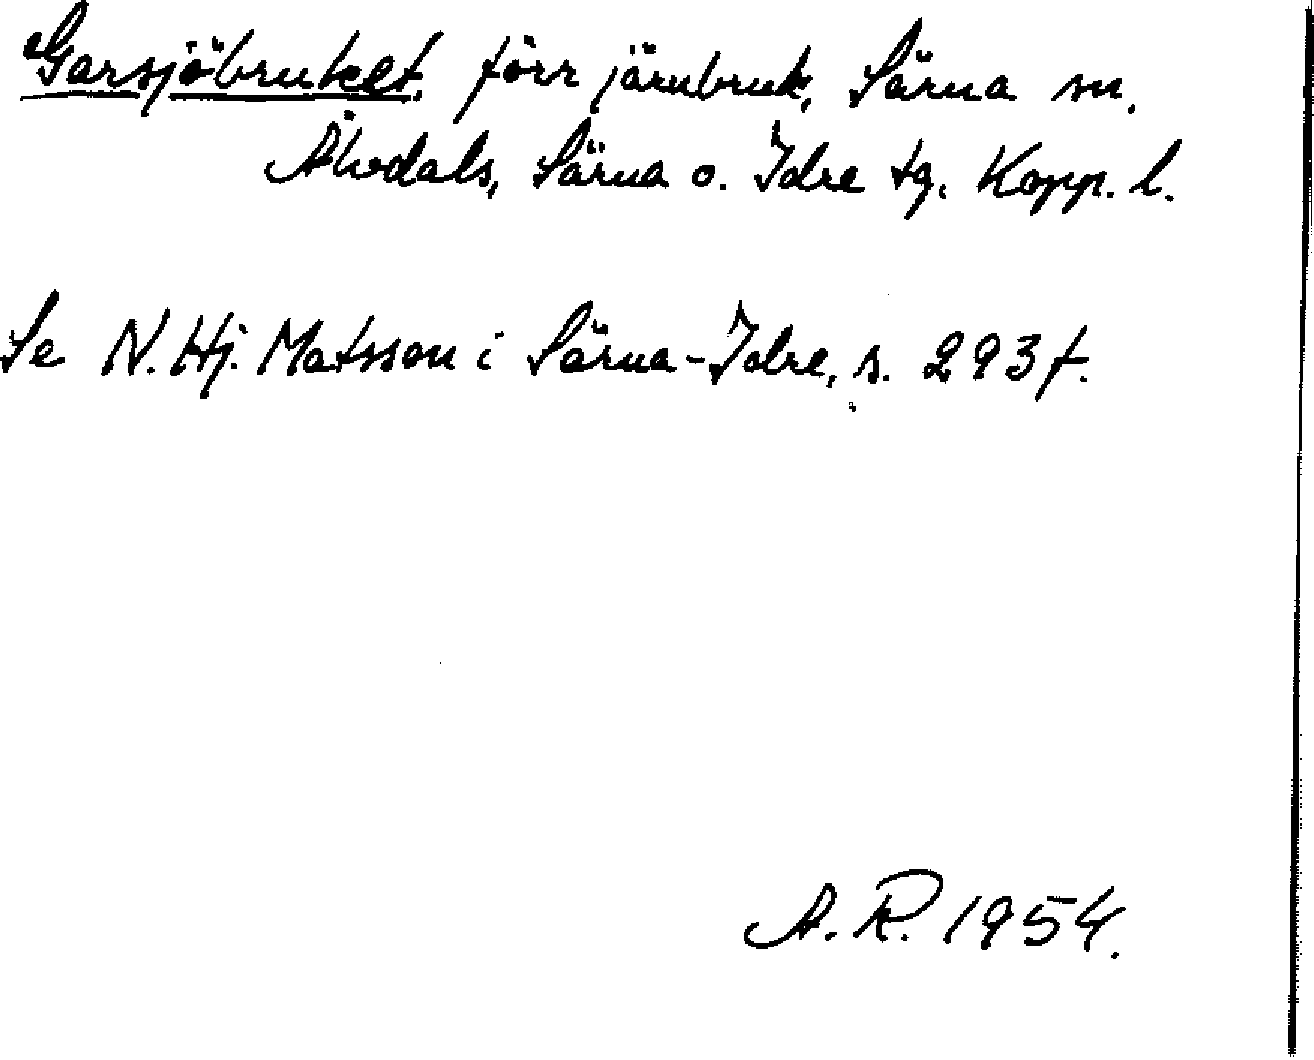 Garsjöbruket, förr järnbruk, Särna sn.
Älvdals, Särna o. Idre tg. Kopp. l.
Se N. Hj. Matsson i Särna-Idre, s. 293 f.
A. R. 1954.